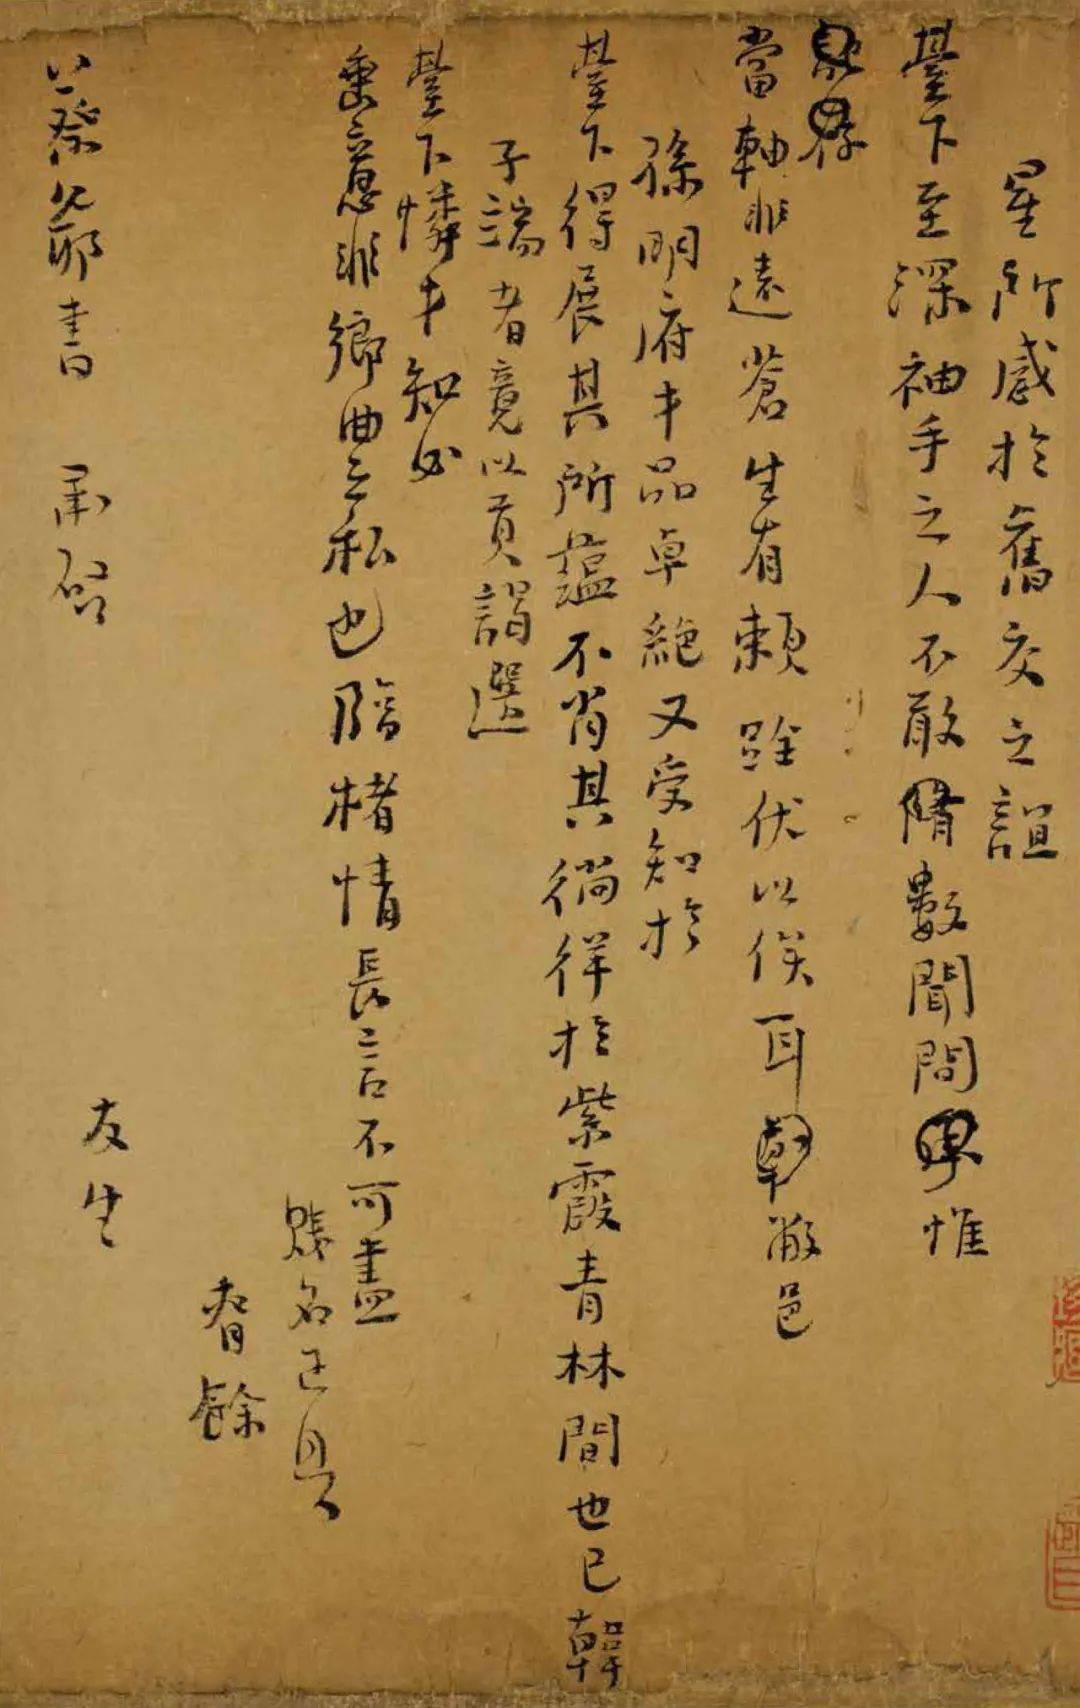 星所感於舊交之誼
臺下至深袖手之人不敢脩數聞問惟
當軸非遠蒼生有賴跧伏以俟耳敝邑
孫明府才品卓絕又受知於
臺下得展其所蘊不肖其徜徉於紫霞青林間也已韓
子滿者竟以貢謁選
臺下憐才知必
垂意非鄉曲之私也臨楮情長言不可盡
賤名正具
眷餘
友生
蔡爺書 肅啟